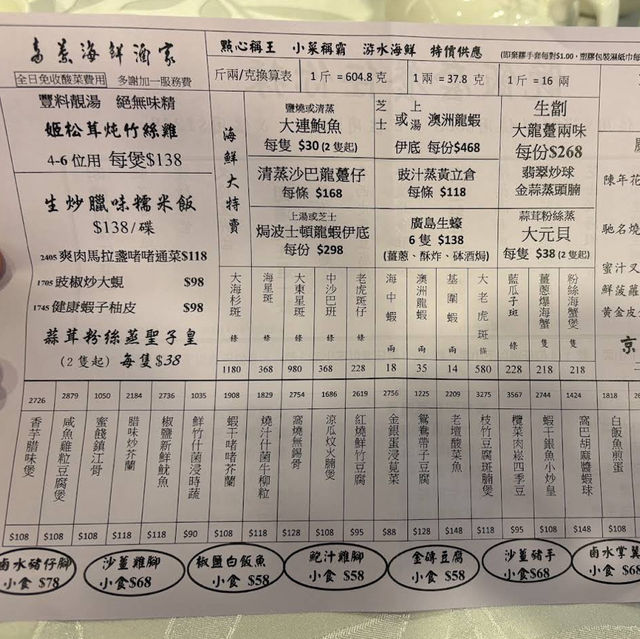 高業海鮮酒家
全日免收酸菜費用 多謝加一服務費
點心稱王 小菜稱霸 游水海鮮 特價供應
(即棄膠手套每對$1.00, 塑膠包裝濕紙巾每
斤兩/克換算表 1斤=604.8克 1兩=37.8克 1斤=16兩
豐料靚湯 絕無味精
姬松茸炖竹絲雞
4-6位用 每煲$138
生炒臘味糯米飯
$138/碟
2405 爽肉馬拉盞啫啫通菜$118
1705 豉椒炒大蜆 $98
1745 健康蝦子柚皮 $98
蒜茸粉絲蒸聖子皇
(2隻起) 每隻$38
海鮮大特賣
鹽燒或清蒸
大連鮑魚
每隻 $30 (2隻起)
芝士 或 上湯 澳洲龍蝦
伊底 每份$468
生劏
大龍躉兩味
每份$268
翡翠炒球
金蒜蒸頭腩
清蒸沙巴龍躉仔
每條 $168
豉汁蒸黃立倉
每條 $118
上湯或芝士
焗波士頓龍蝦伊底
每份 $298
廣島生蠔
6隻 $138
(薑蔥、酥炸、砵酒焗)
蒜茸粉絲蒸
大元貝
每隻 $38 (2隻起)
大海杉斑 條 1180
海星斑 條 368
大東星斑 條 980
中沙巴斑 條 368
老虎斑仔 條 228
海中蝦 兩 18
澳洲龍蝦 兩 35
基圍蝦 兩 14
大老虎斑 條 580
藍瓜子斑 條 228
薑蔥爆海蟹 隻 218
粉絲海蟹煲 隻 218
陳年花
馳名燒
蜜汁叉
鮮菠蘿
黃金皮
京
2726 香芋臘味煲 $108
2879 咸魚雞粒豆腐煲 $108
1050 蜜餞鎮江骨 $118
2184 臘味炒芥蘭 $118
2736 椒鹽新鮮魷魚 $118
1035 鮮竹什菌浸時蔬 $90
1908 蝦干啫啫芥蘭 $108
1829 燒汁什菌牛柳粒 $118
2754 窩燒無錫骨 $128
1686 涼瓜炆火腩煲 $108
1190 紅燒鮮竹豆腐 $95
2756 金銀蛋浸莧菜 $88
1225 鴛鴦帶子豆腐 $128
2209 老壇酸菜魚 $148
3275 枝竹豆腐斑腩煲 $118
3567 欖菜肉崧四季豆 $95
2744 蝦干銀魚小炒皇 $108
1424 窩巴胡麻醬蝦球 $148
1818 白飯魚煎蛋 $108
26
滷水豬仔腳 小食 $78
沙薑雞腳 小食$68
椒鹽白飯魚 小食 $58
鮑汁雞腳 小食 $58
金磚豆腐 小食 $58
沙薑豬手 小食$68
滷水掌翼 小食 $68